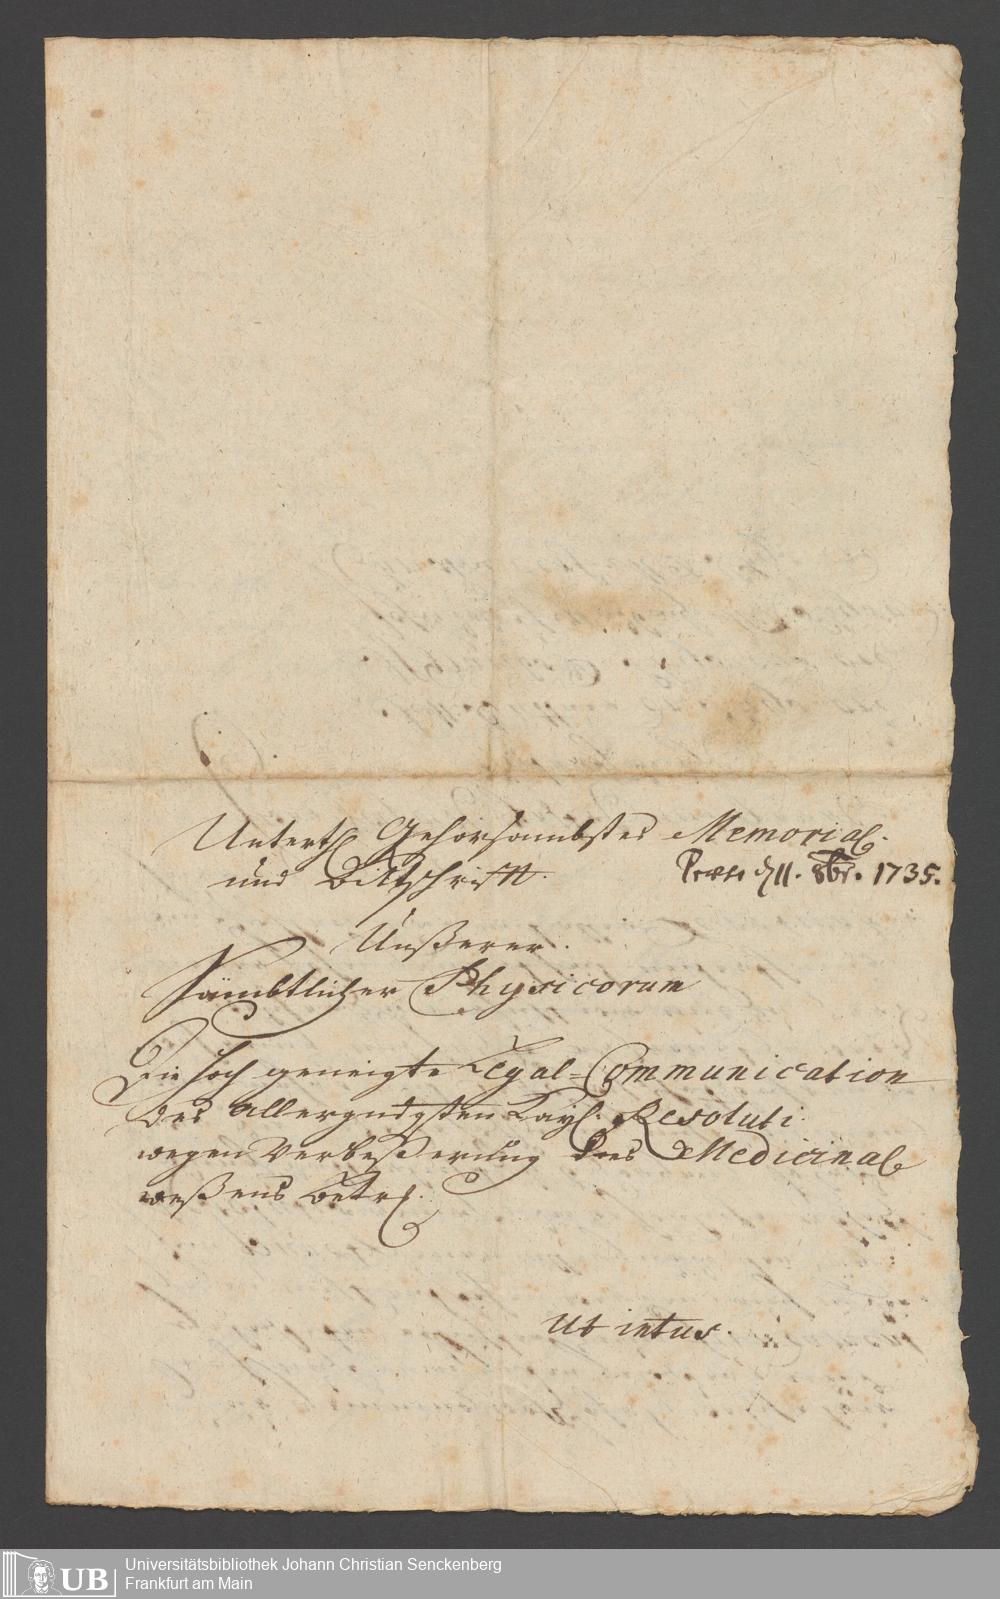 Unterth. Gehorsambstes Memorial.
und Bittschrifft.
den 11. 8br. 1735.
Unßerer.
Sämbtlicher Physicorum
Die hoch geneigte Legal-Communication
des allergndgsten Kayl. Resoluti
wegen Verbeßerung des Medicinal
weßens betr.
Ut intus.
UB
Universitätsbibliothek Johann Christian Senckenberg
Frankfurt am Main